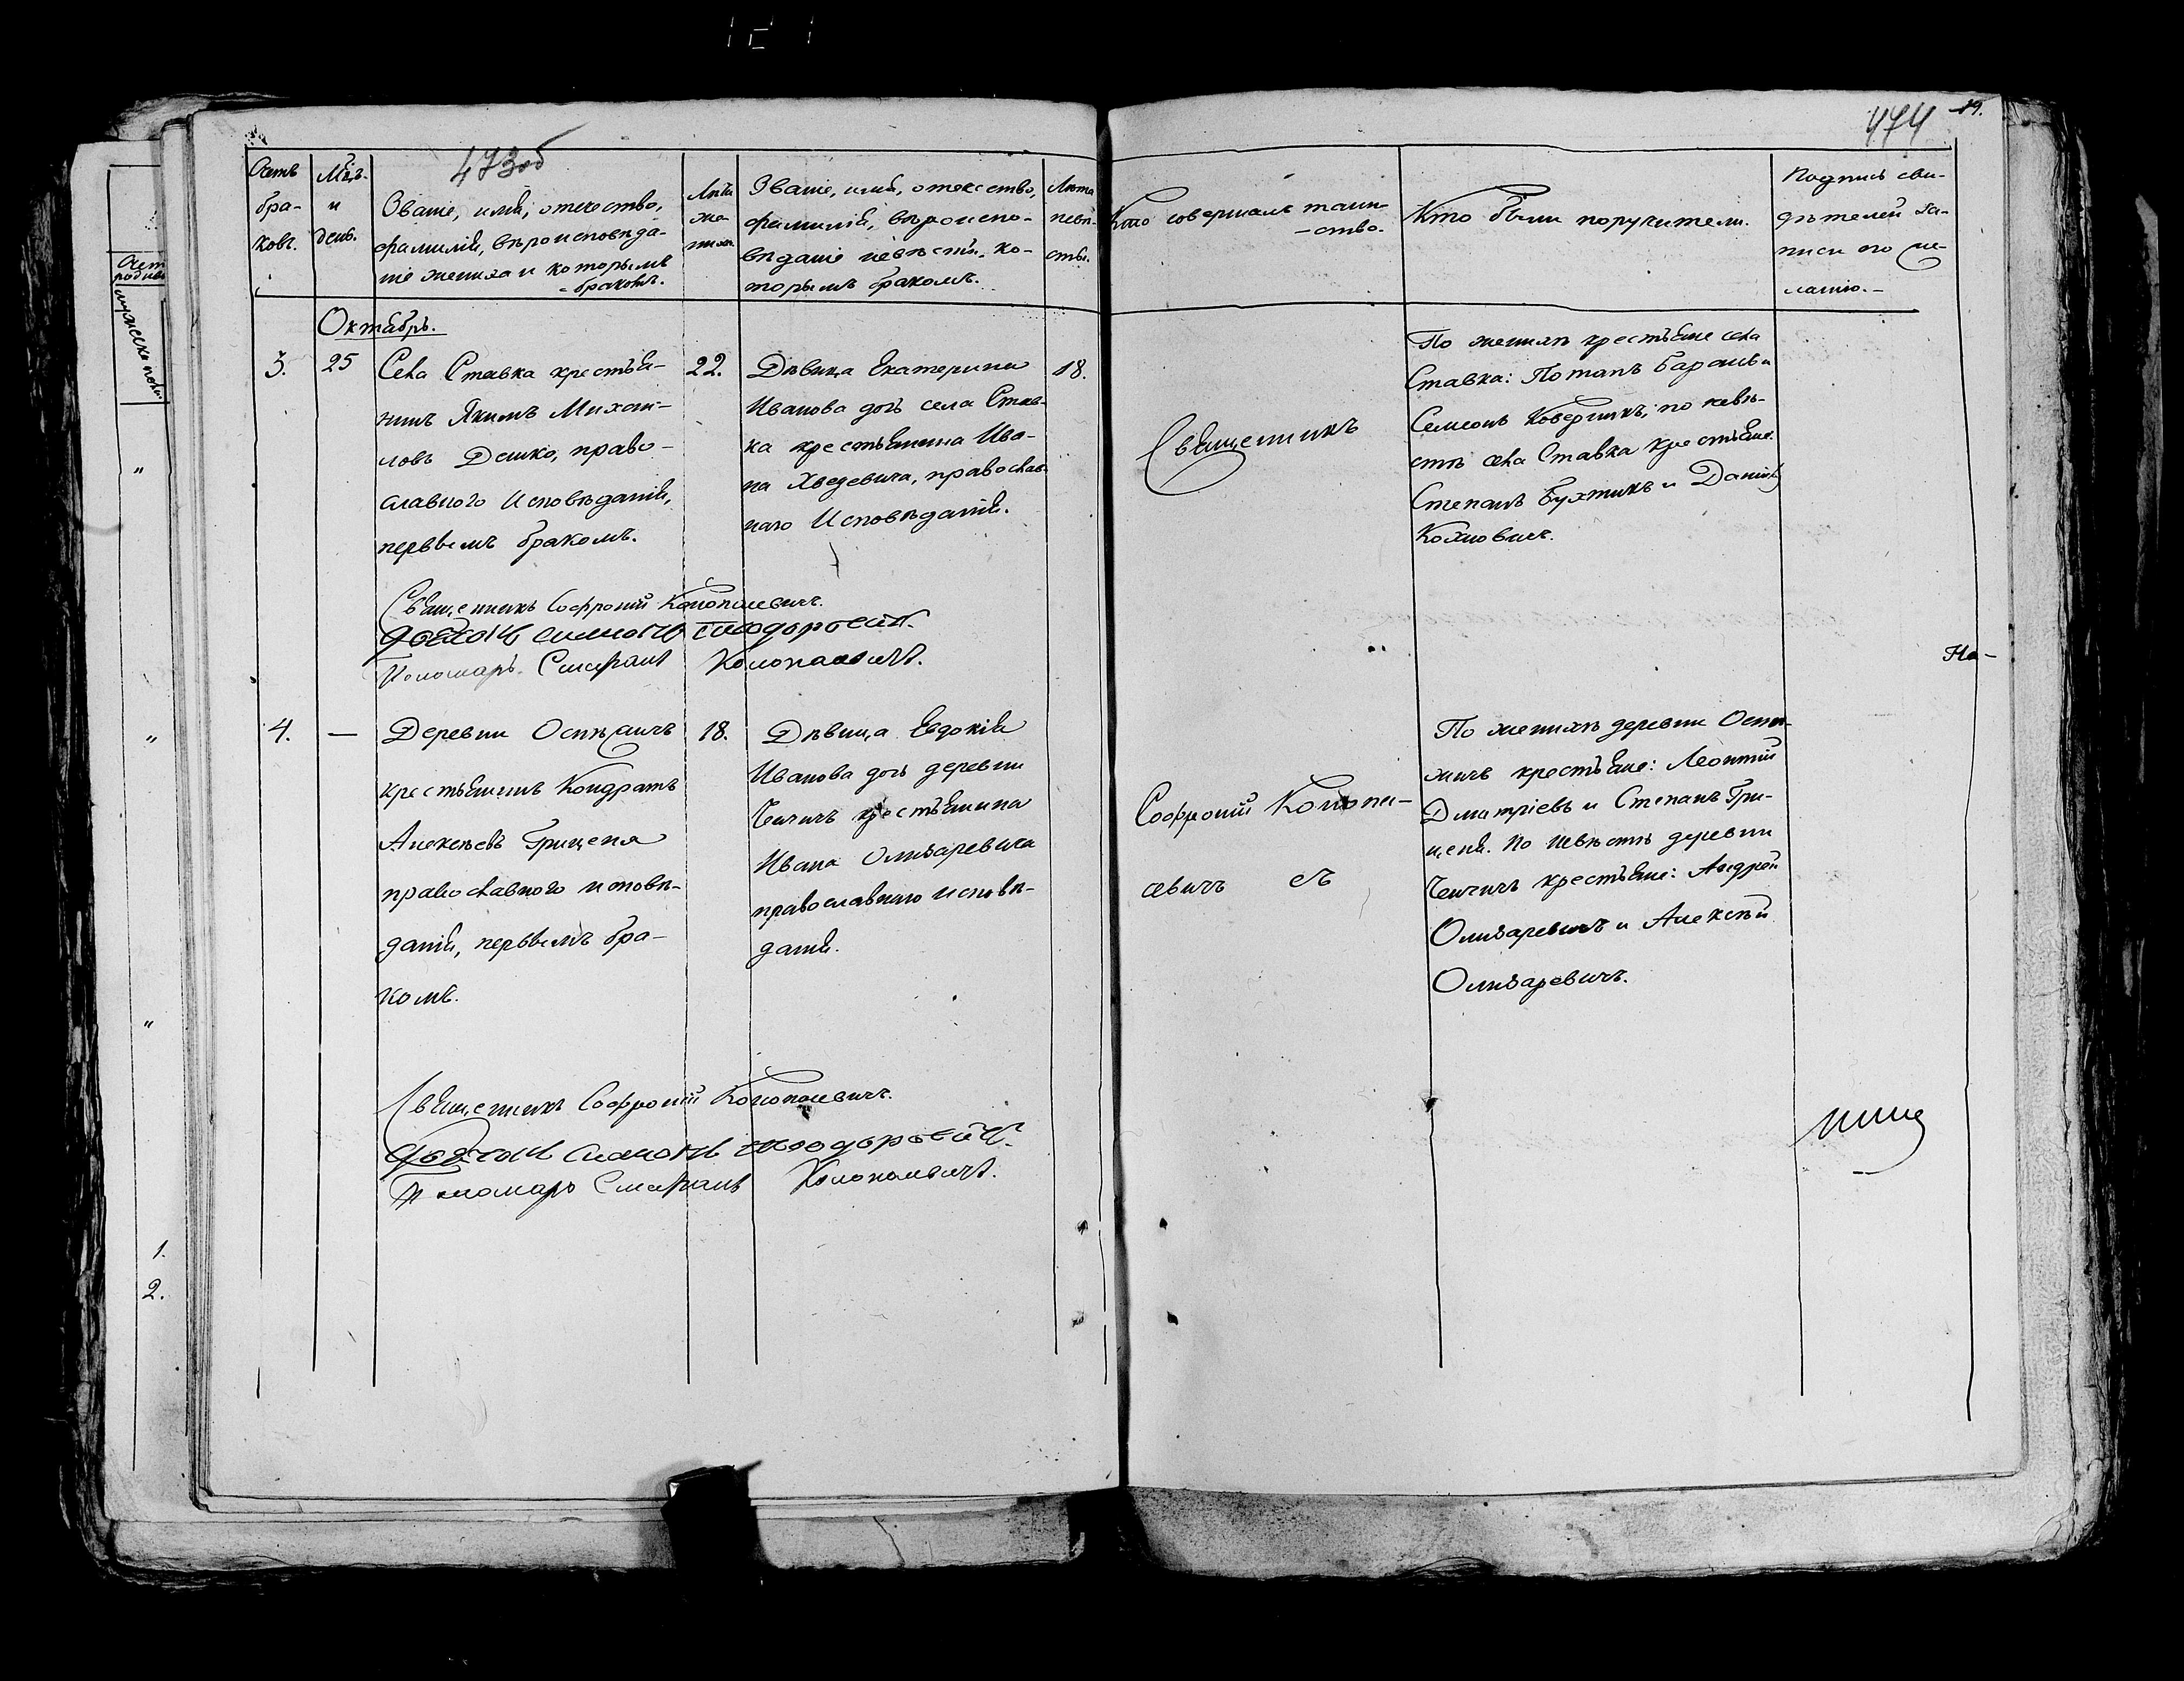 473об
474
19.
Счетъ
бра-
ковъ.
Мѣц.
и
день.
Званіе, имя, отчество,
фамилія, вѣроисповѣда-
ніе жениха и которымъ
бракомъ.
Лѣта
же-
ниха.
Званіе, имя, отчество,
фамилія, вѣроиспо-
вѣданіе невѣсты, ко-
торымъ бракомъ.
Лѣта
невѣ-
сты.
Кто совершалъ таин-
-ство.
Кто были поручители.
Подпись сви-
дѣтелей за-
писи по же-
ланію.-
Октябрь.
3.
25
Села Ставка крестья-
нинъ Якимъ Михай-
ловъ Дешко, право-
славного Исповѣданія,
первымъ бракомъ.
22.
Дѣвица Екатерина
Иванова дочь села Став-
ка крестьянина Ива-
на Хведевича, православ-
наго Исповѣданія.
18.
Священникъ
По женихѣ крестьяне села
Ставка: Потапъ Баранъ и
Семеонъ Коверникъ; по невѣ-
стѣ села Ставка крестьяне
Степанъ Бухтикъ и Даніилъ
Кохновичъ.
Священникъ Софроній Конопасевичъ.
Пономарь Стефанъ Конопасевичъ.
На-
4.
—
Деревни Оснѣжичъ
крестьянинъ Кондратъ
Алексѣевъ Грицепя
православного исповѣ-
данія, первымъ бра-
комъ.
18.
Дѣвица Евдокія
Иванова дочь деревни
крестьянина
Ивана Олизаревича
православнаго исповѣ-
данія.
Софроній Конопа-
севичъ съ
По женихѣ деревни Оснѣ-
жичъ крестьяне: Леонтій
Дмитріевъ и Степанъ Гри-
цепя. По невѣстѣ деревни
крестьяне: Андрей
Олизаревичъ и Алексѣй
Олизаревичъ.
Священникъ Софроній Конопасевичъ.
Пономарь Стефанъ Конопасевичъ.
1.
2.